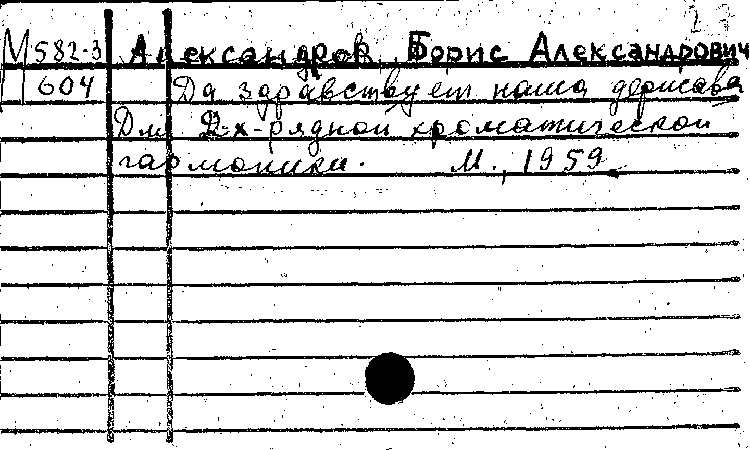 М582-3 Александров, Борис Александрович
604 Да здравствует наша держава
Для 2-х-рядной хроматической
гармоники. М., 1959